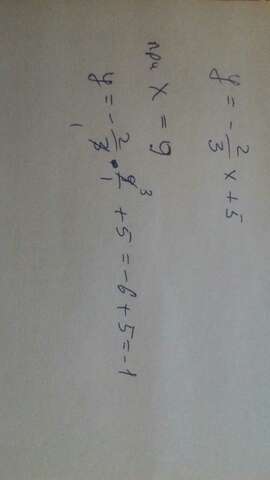 y = -2/3 x + 5
при x = 9
y = -2/3 · 9/1 + 5 = -6 + 5 = -1
1 1 3